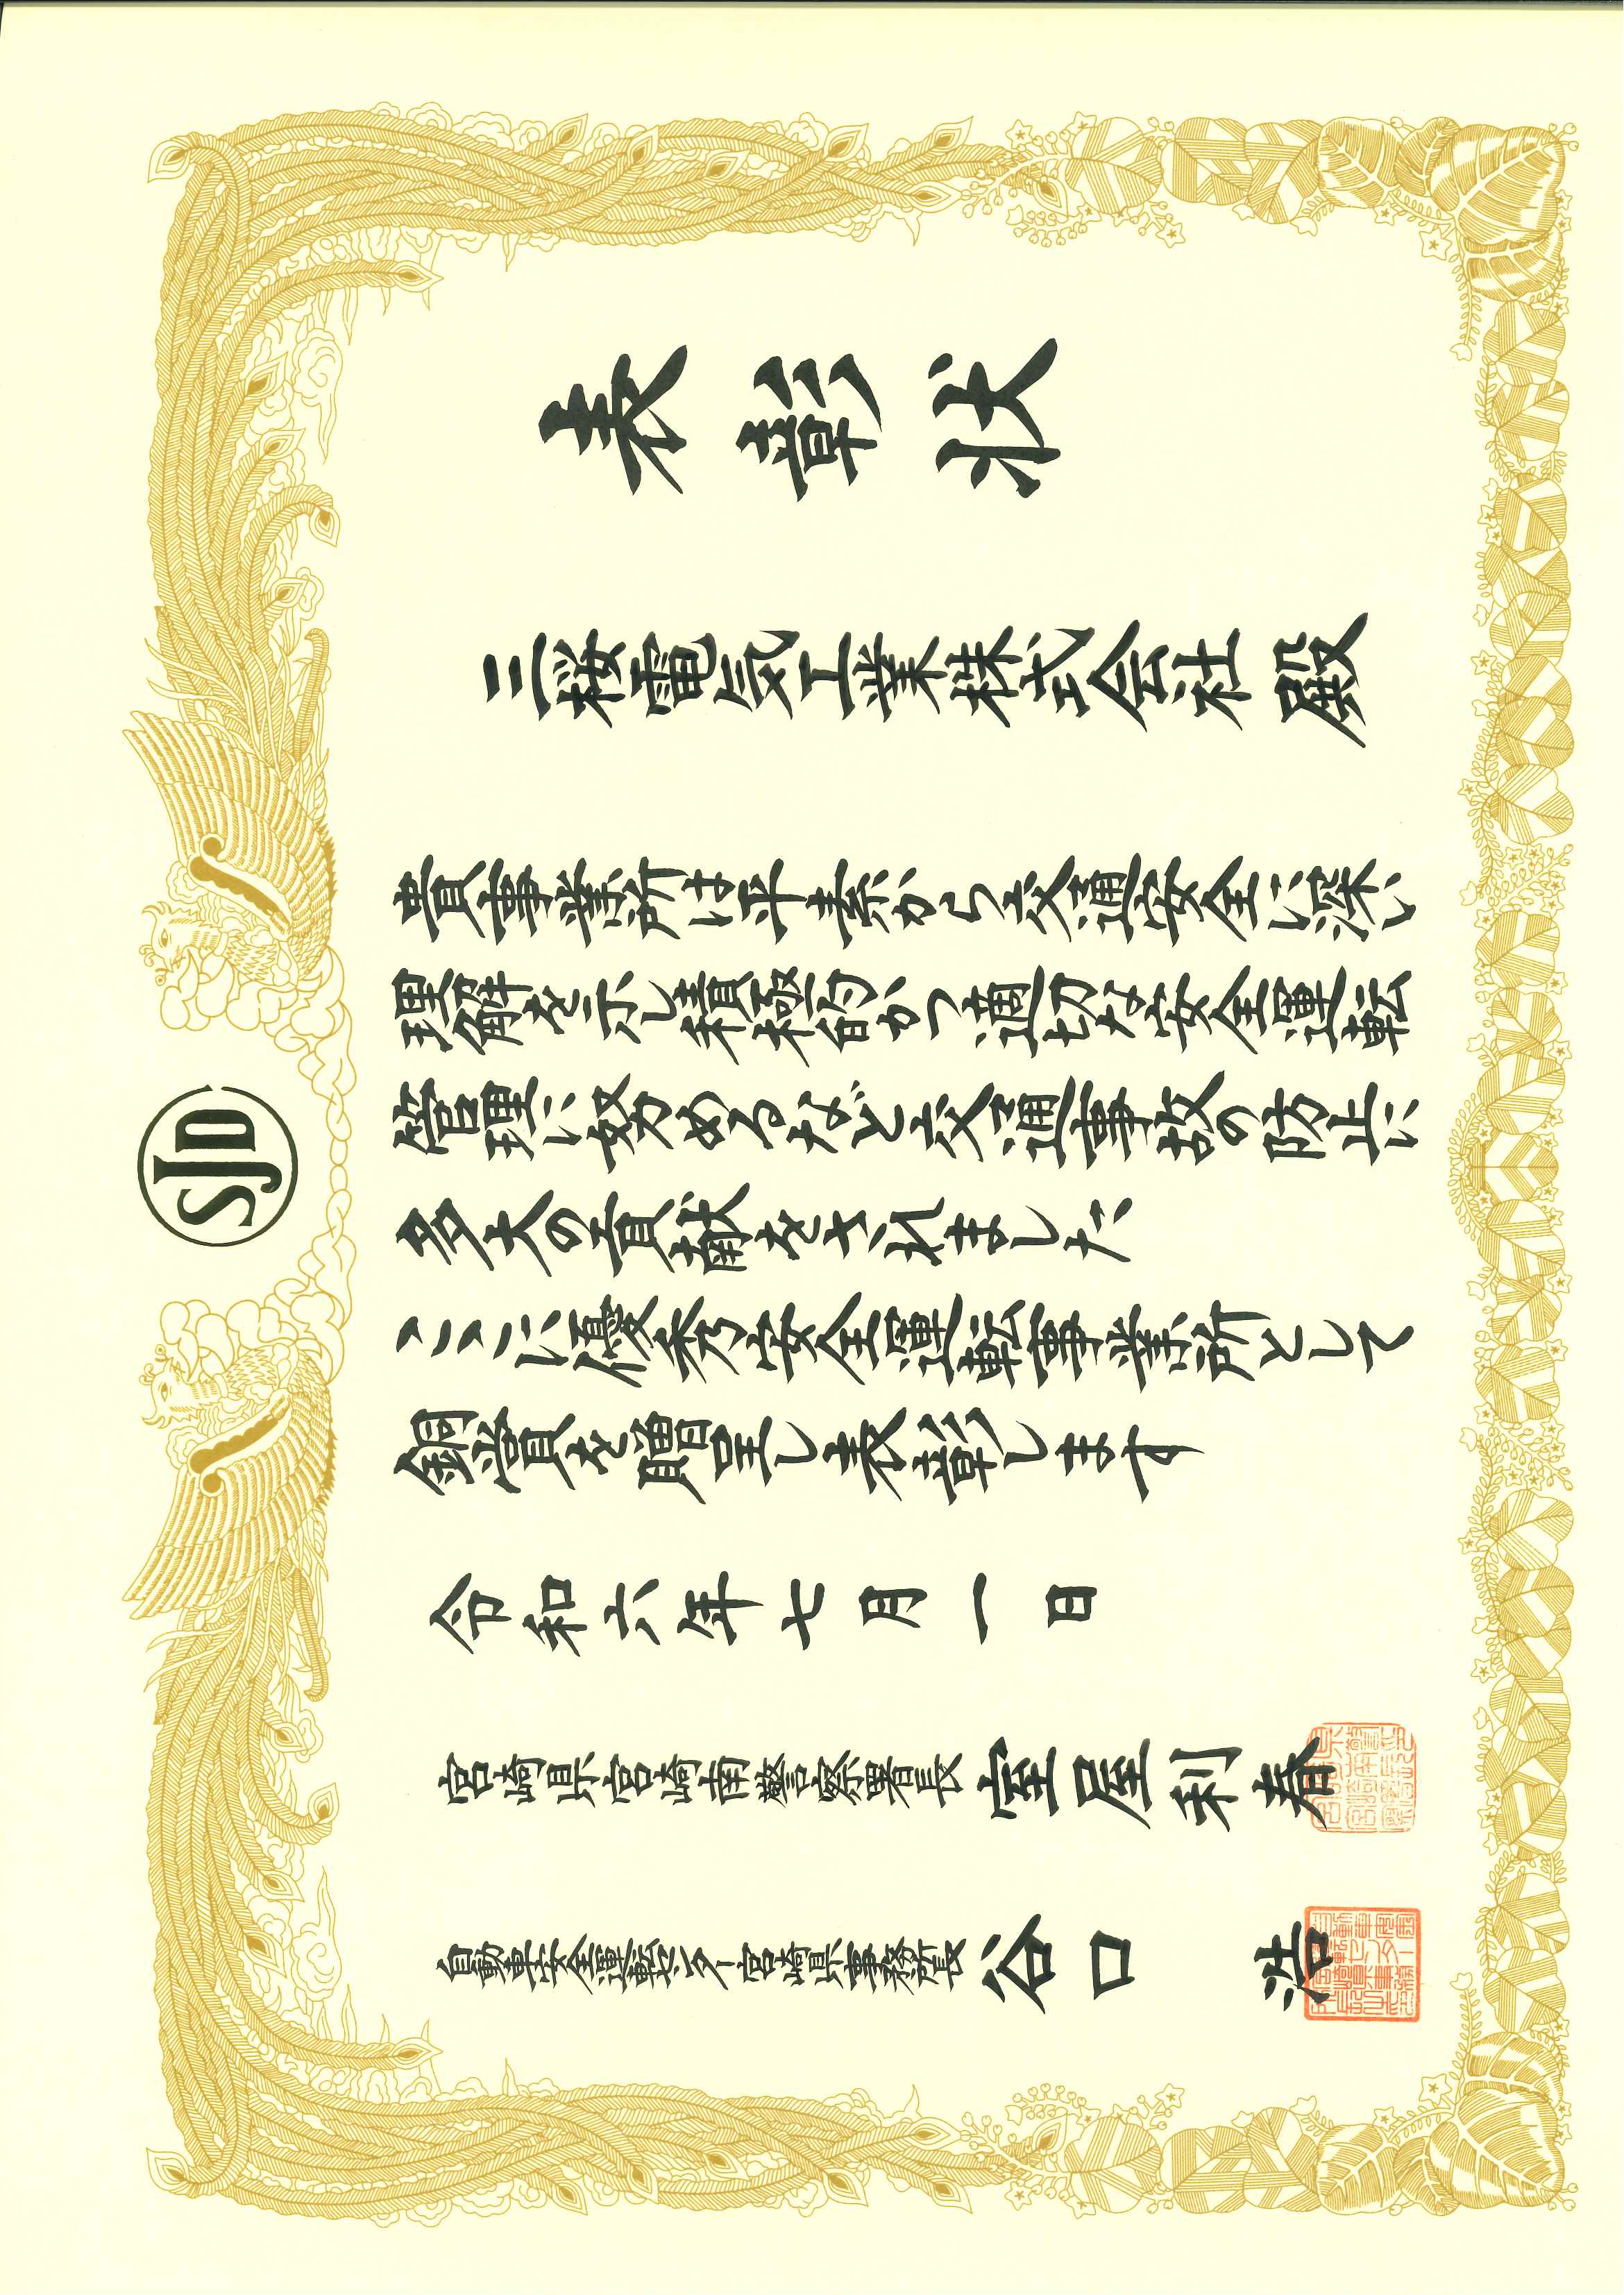 SJD
表彰状
三桜電気工業株式会社 殿
貴事業所は平素から交通安全に深い
理解を示し積極的かつ適切な安全運転
管理に努めるなど交通事故の防止に
多大の貢献をされました
ここに優秀安全運転事業所として
銅賞を贈呈し表彰します
令和六年七月一日
宮崎県宮崎南警察署長 室屋利春
自動車安全運転センター宮崎県事務所長 谷口 浩